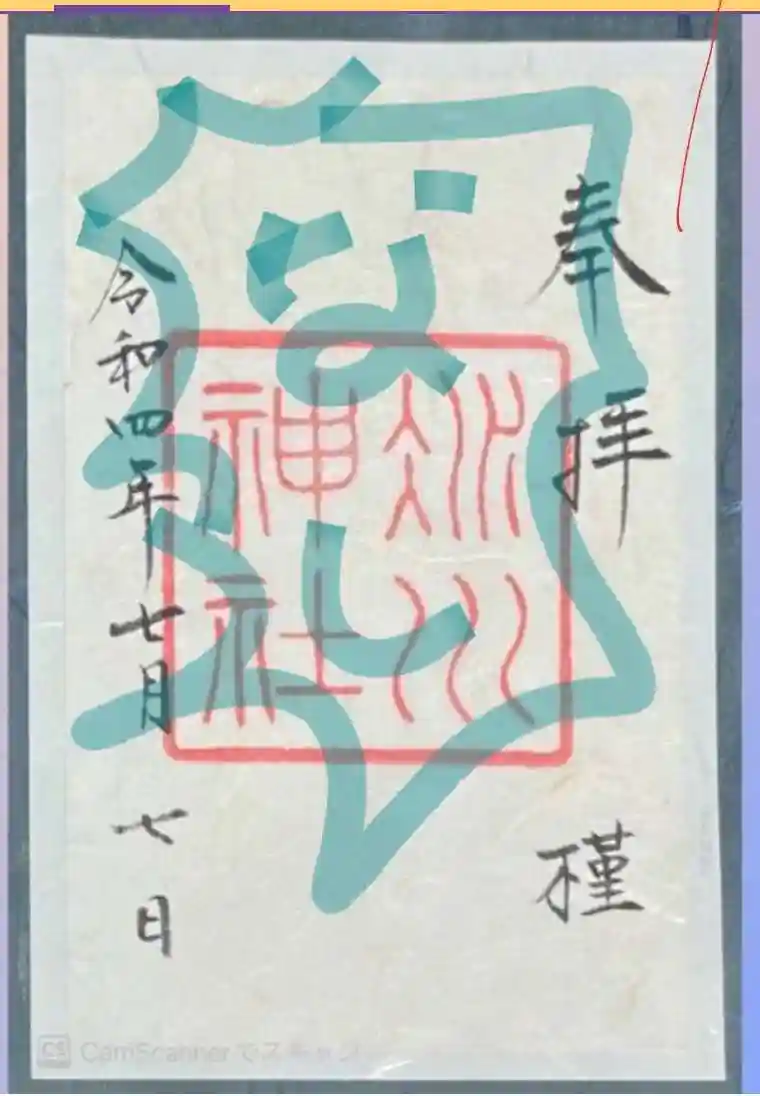 奉拝
槿
冰川
神社
なし
令和四年七月七日
CS CamScanner でスキャン